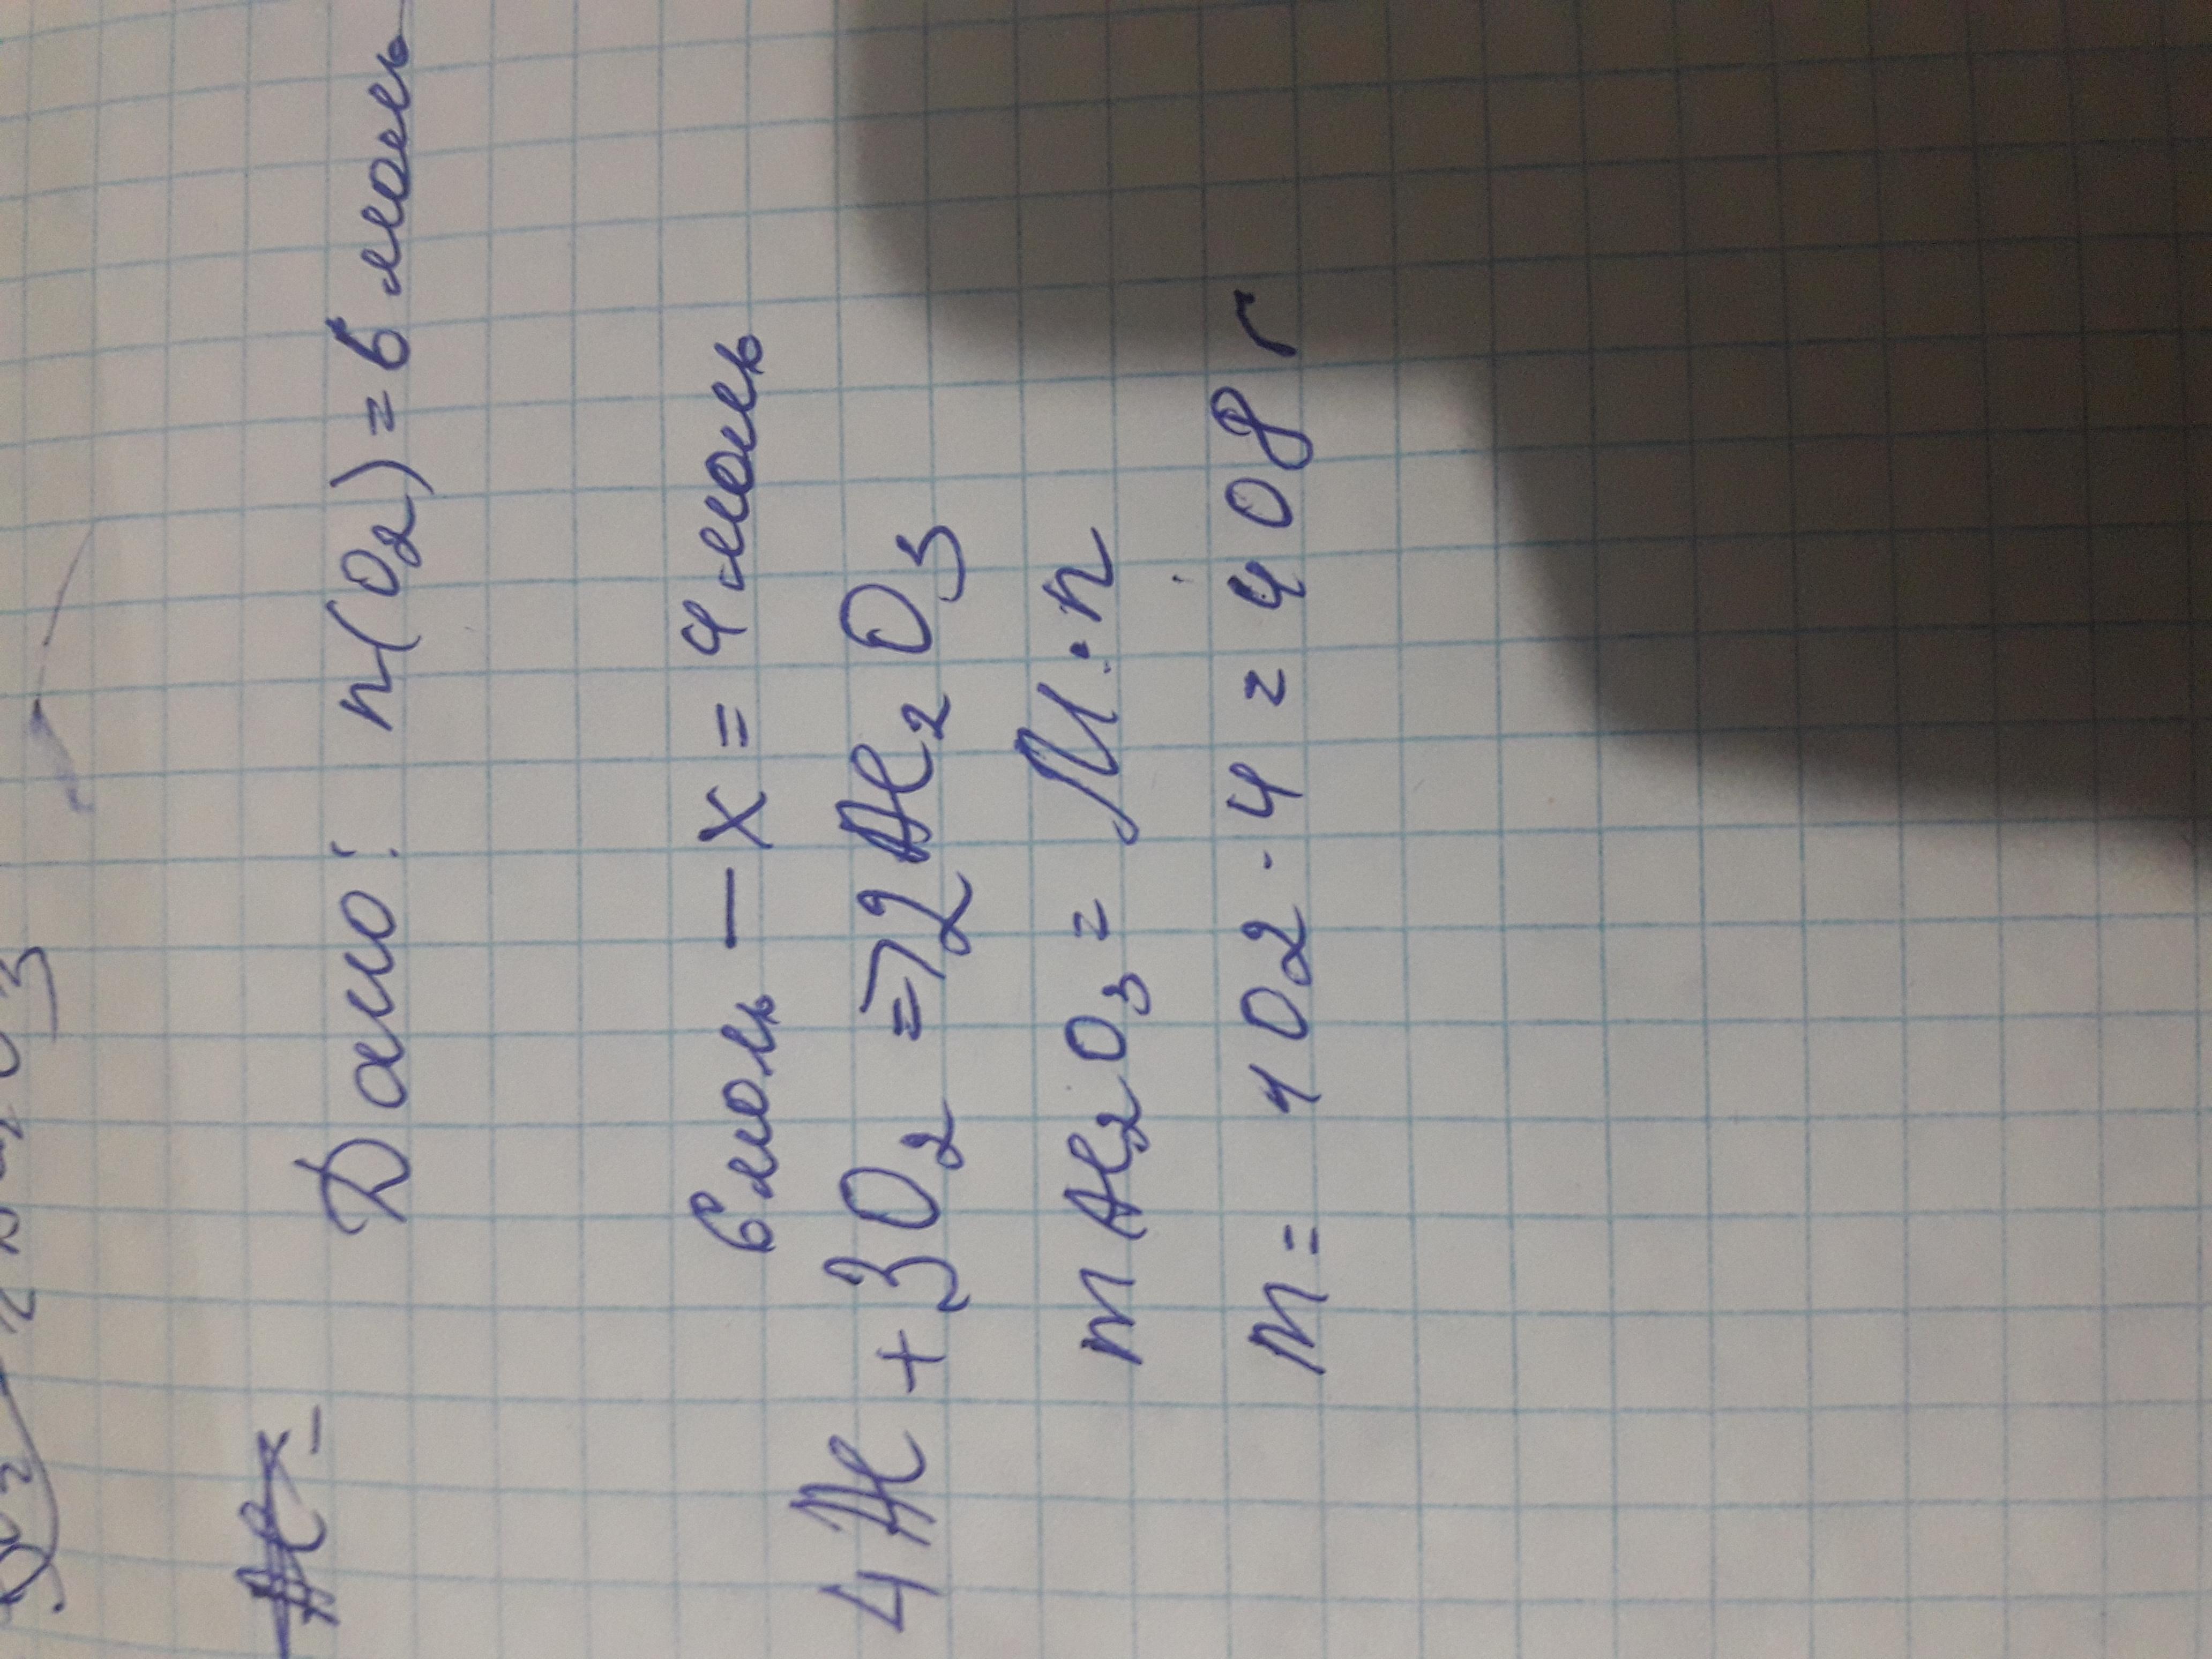 Дано: n(O₂) = 6 моль
6 моль — x = 4 моль
4Al + 3O₂ => 2Al₂O₃
m Al₂O₃ = M · n
m = 102 · 4 = 408 г